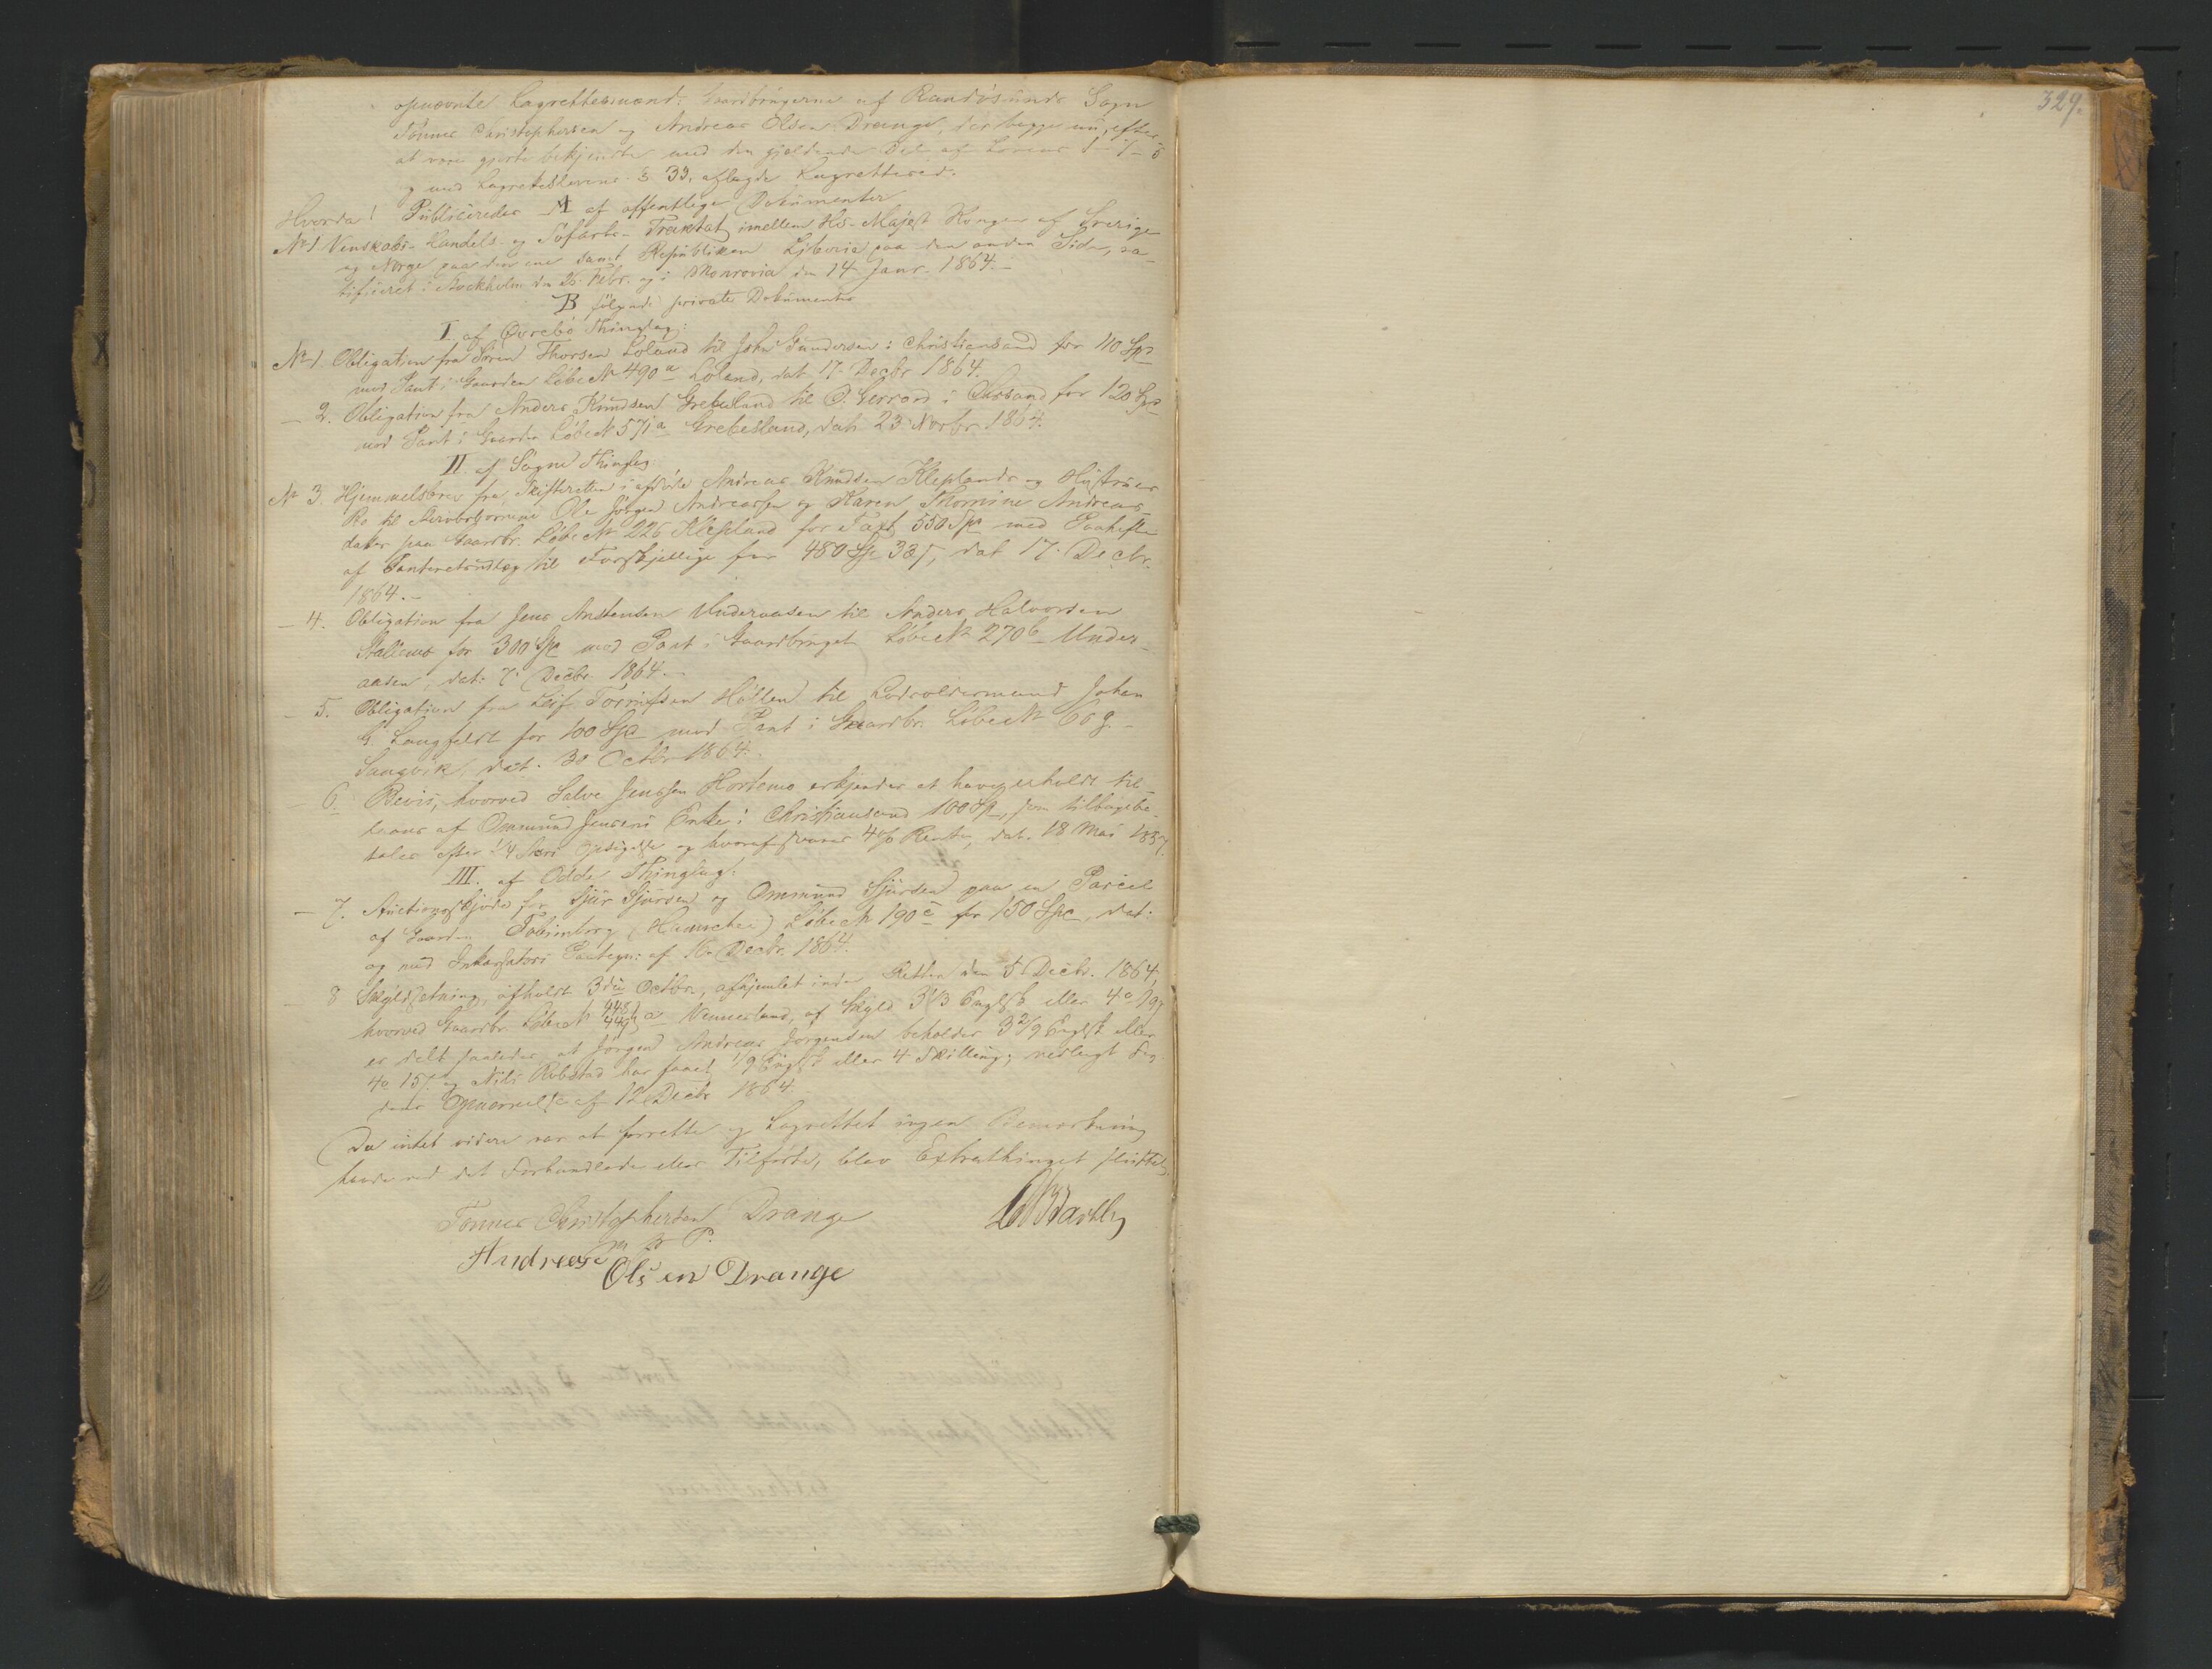 opnævnte Lagrettesmænd: Gaardbrugerne af Randøsunds Sogn
Tønnes Christophersen og Andreas Olsen Drange, der begge nu, efter
at være gjorte bekjendte med den gjældende Del af Lovens 1-7-8
og med Lagrettelovens § 33, aflagde Lagretteseed.
Hvorda! Publiceredes A af offentlige Dokumenter
No 1 Venskabs- Handels- og Søfarts- Traktat imellem Hs- Majest Kongen af Sverige
og Norge paa den ene samt Republiken Liberia paa den anden Side, ra-
tificeret i Stockholm den 26 Febr. og i Monrovia den 14 Janr. 1864.-
B følgende private Dokumenter
I. af Øvrebø Thinglag:
No 1. Obligation fra Søren Thorsen Loland til John Gundersen i Christiansand for 110 Spd
mod Pant i Gaarden Løbe No 490 a Loland, dat 17 Decbr 1864.
- 2. Obligation fra Anders Knudsen Grebesland til O. Gerrard i Chrsand for 120 Spd
mod Pant i Gaarden Løbe No 571 a Grebesland, dat: 23 Novbr. 1864.
II. af Søgne Thinglag:
No 3. Hjemmelsbrev fra Skifteretten i afdøde Andreas Knudsen Kleplands og Hustrues
Bo til Arvebørnene Ole Jørgen Andreassen og Karen Thomine Andreas-
datter paa Gaardbr. Løbe No 226 Klepland for Taxt 550 Spd med Paahefte
af Panteretsudlæg til Forskjellige for 480 Sp 38 s, dat 17. Decbr.
1864.-
- 4. Obligation fra Jens Anstensen Underaasen til Anders Halvorsen
Stallemo for 300 Spd mod Pant i Gaardbruget Løbe No 270 b Under-
aasen, dat: 7 Decbr 1864.-
- 5. Obligation fra Leif Torjusen Høllen til Lodsoldermand Johan
G. Langfeldt for 100 Spd mod Pant i Gaardbr. Løbe No 60 g.-
Sangvik, dat. 30 Octbr 1864.
6. Bevis, hvorved Salve Jenssen Hortemo erkjender at have erholdt til-
laans af Ommund Jensens Enke i Christiansand 100 Sp, som tilbagebe-
tales efter 1/4 Aars Opsigelse og hvoraf svares 4 % Rente, dat. 18 Mai 1857.
III. af Oddernes Thinglag:
- 7. Auctionsskjøde for Sjur Sjursen og Ommund Sjursen paa en Parcel
af Gaarden Tobienborg (Hannevei) Løbe No 190 c for 150 Spd, dat:
og med Inkassators Paategn: af 10 Decbr. 1864.
- 8 Skyldsetning, afholdt 3die Octbr., afhjemlet inden Retten den 5 Decbr. 1864,
hvorved Gaardbr. Løbe No 448/449 a Vennesland, af Skyld 3 1/3 Englsk eller 4 o 19 s
er delt saaledes, at Jørgen Andreas Jørgensen beholder 3 2/9 Englsk eller
4 o 15 s og Nils Robstad har faaet 1/9 Englsk eller 4 Skilling; vedlagt Fog-
dens Opnævnelse af 12 Decbr 1864.
Da intet videre var at forrette og Lagrettet ingen Bemærkning
havde ved det Forhandlede eller Tilførte, blev Extrathinget sluttet.
Tønnes Christophersen Drange
m. f. P.
Andreas
Olsen Drange
329.